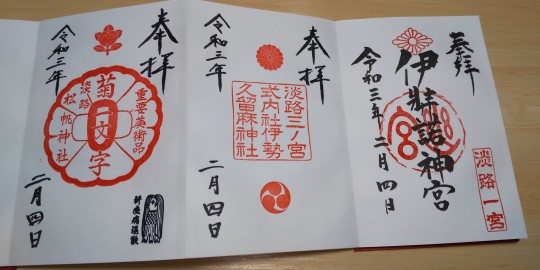 奉拝
伊弉諾神宮
淡路一宮
令和三年
二月四日
奉拝
淡路三ノ宮
式内社伊勢
久留麻神社
令和三年
二月四日
奉拝
重要美術品
菊一文字
淡路
松帆神社
令和三年
二月四日